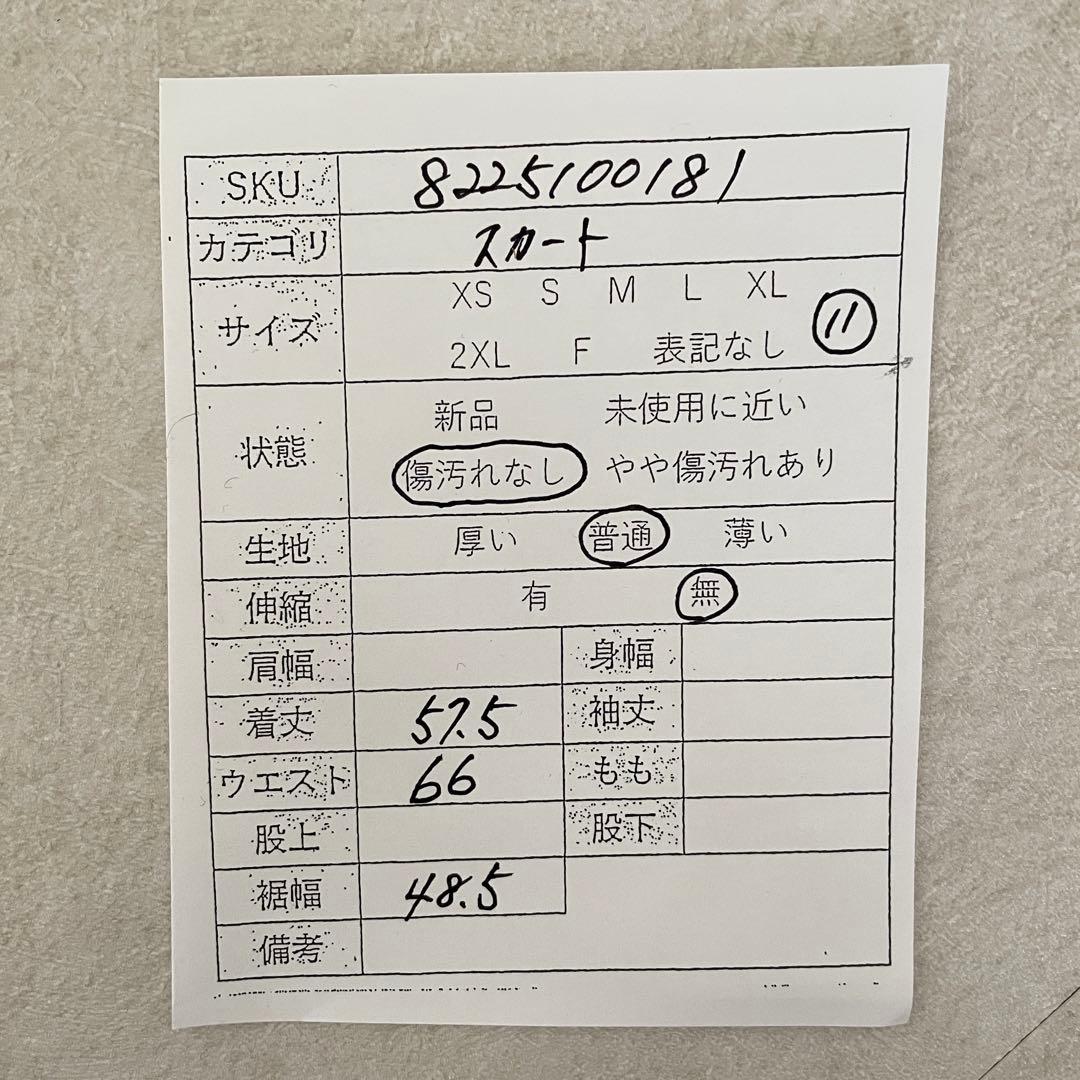 SKU 8225100181
カテゴリ スカート
サイズ XS S M L XL
2XL F 表記なし 11
状態 新品 未使用に近い
傷汚れなし やや傷汚れあり
生地 厚い 普通 薄い
伸縮 有 無
肩幅 身幅
着丈 57.5 袖丈
ウエスト 66 もも
股上 股下
裾幅 48.5
備考